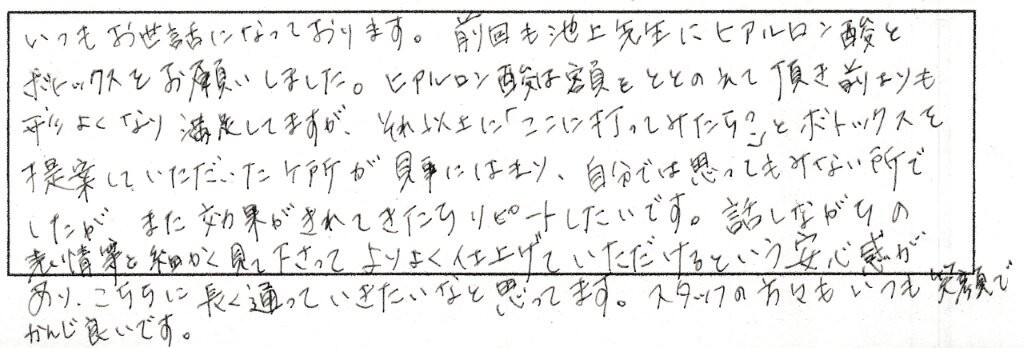 いつもお世話になっております。前回も池上先生にヒアルロン酸と
ボトックスをお願いしました。ヒアルロン酸は額をととのえて頂き前よりも
形よくなり満足してますが、それ以上に「ここに打ってみたら?」とボトックスを
提案していただいたケ所が見事にはまり、自分では思ってもみない所で
したが また効果がきれてきたらリピートしたいです。話しながらの
表情等を細かく見て下さって よりよく仕上げていただけるという安心感が
あり、こちらに長く通っていきたいなと思ってます。スタッフの方々もいつも笑顔で
かんじ良いです。